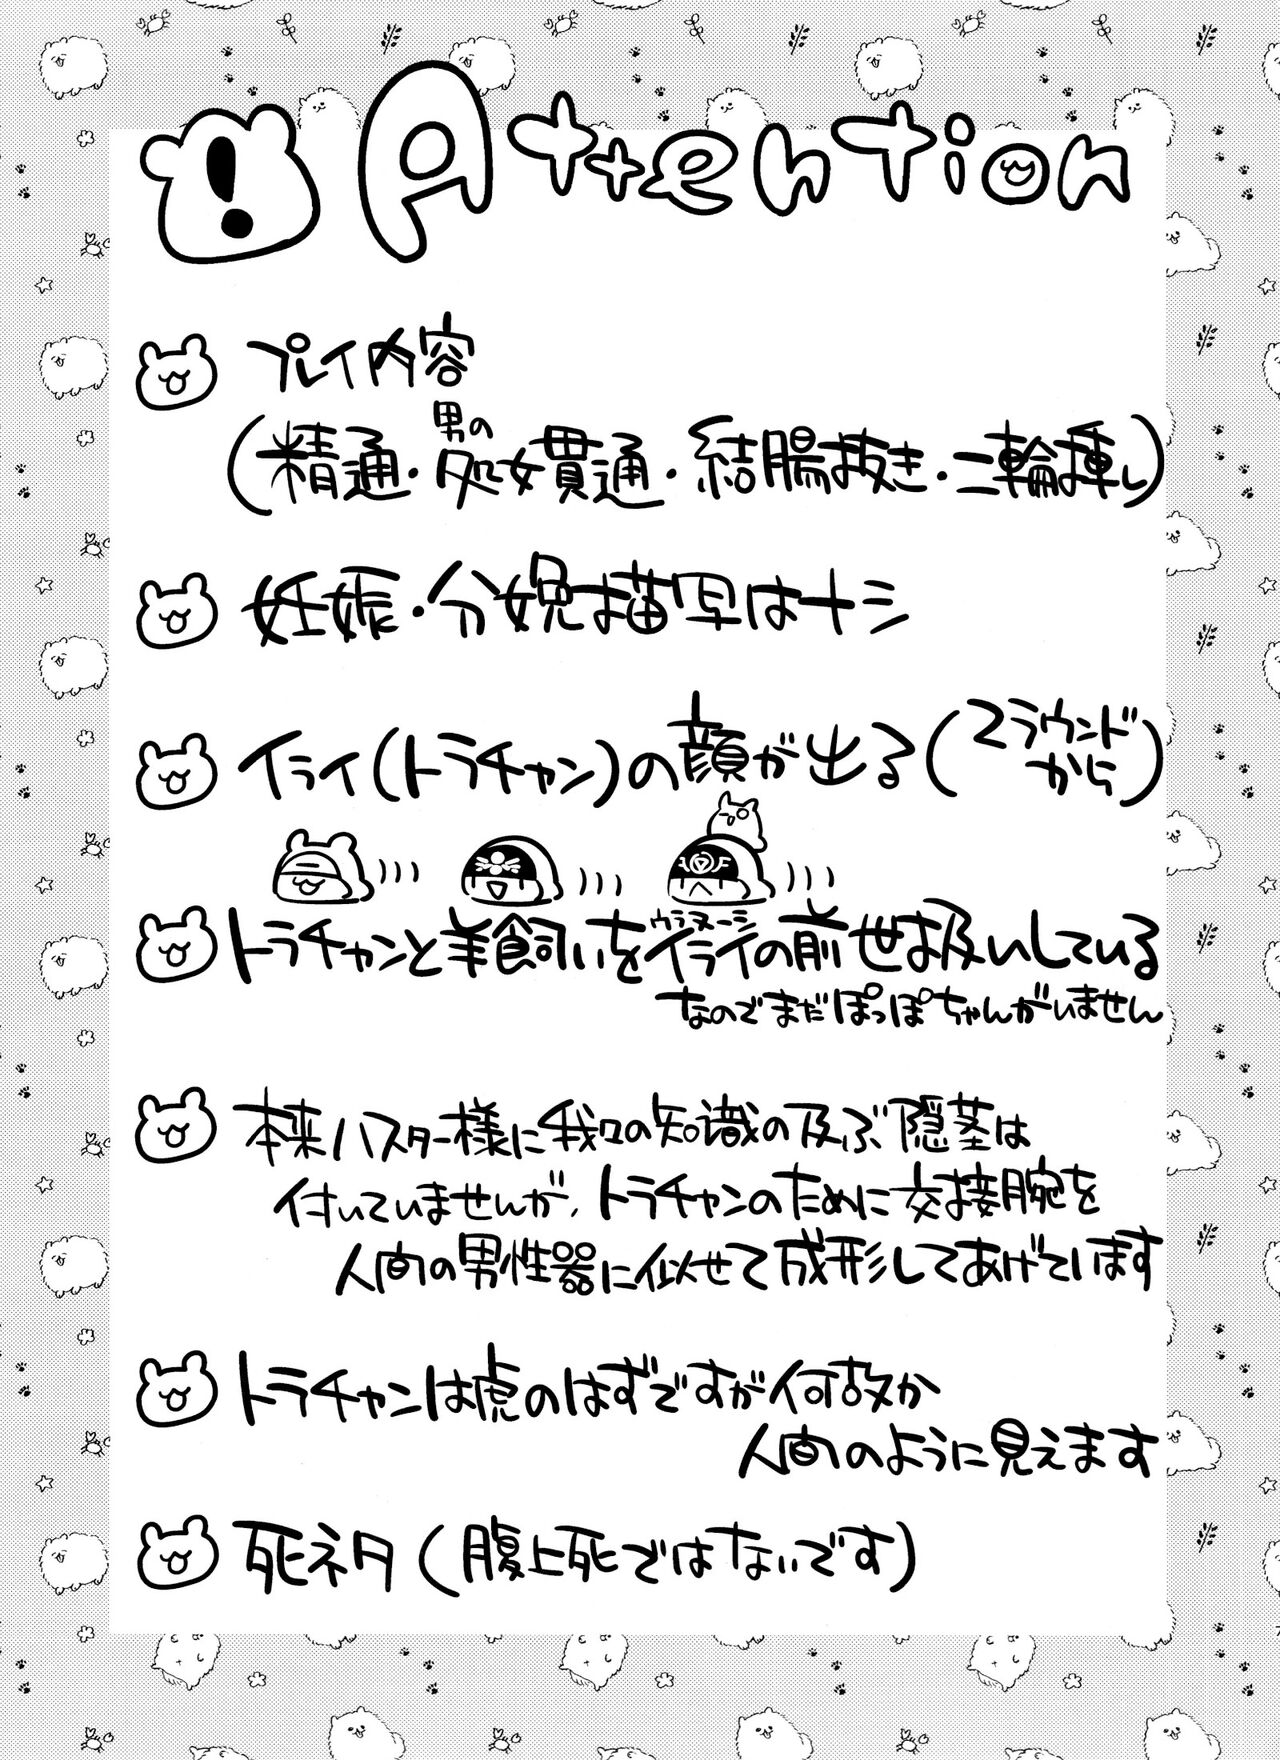 Attention
プレイ内容
(精通・男の処女貫通・結腸抜き・二輪挿し)
妊娠・分娩描写はナシ
イライ(トラチャン)の顔が出る(2ラウンドから)
トラチャンと羊飼いをイライ(ウラヌーシ)の前世扱いしている
なのでまだぽっぽちゃんがいません
本来ハスター様に我々の知識の及ぶ陰茎は
付いていませんが、トラチャンのために交接腕を
人間の男性器に似せて成形してあげています
トラチャンは虎のはずですが何故か
人間のように見えます
死ネタ(腹上死ではないです)